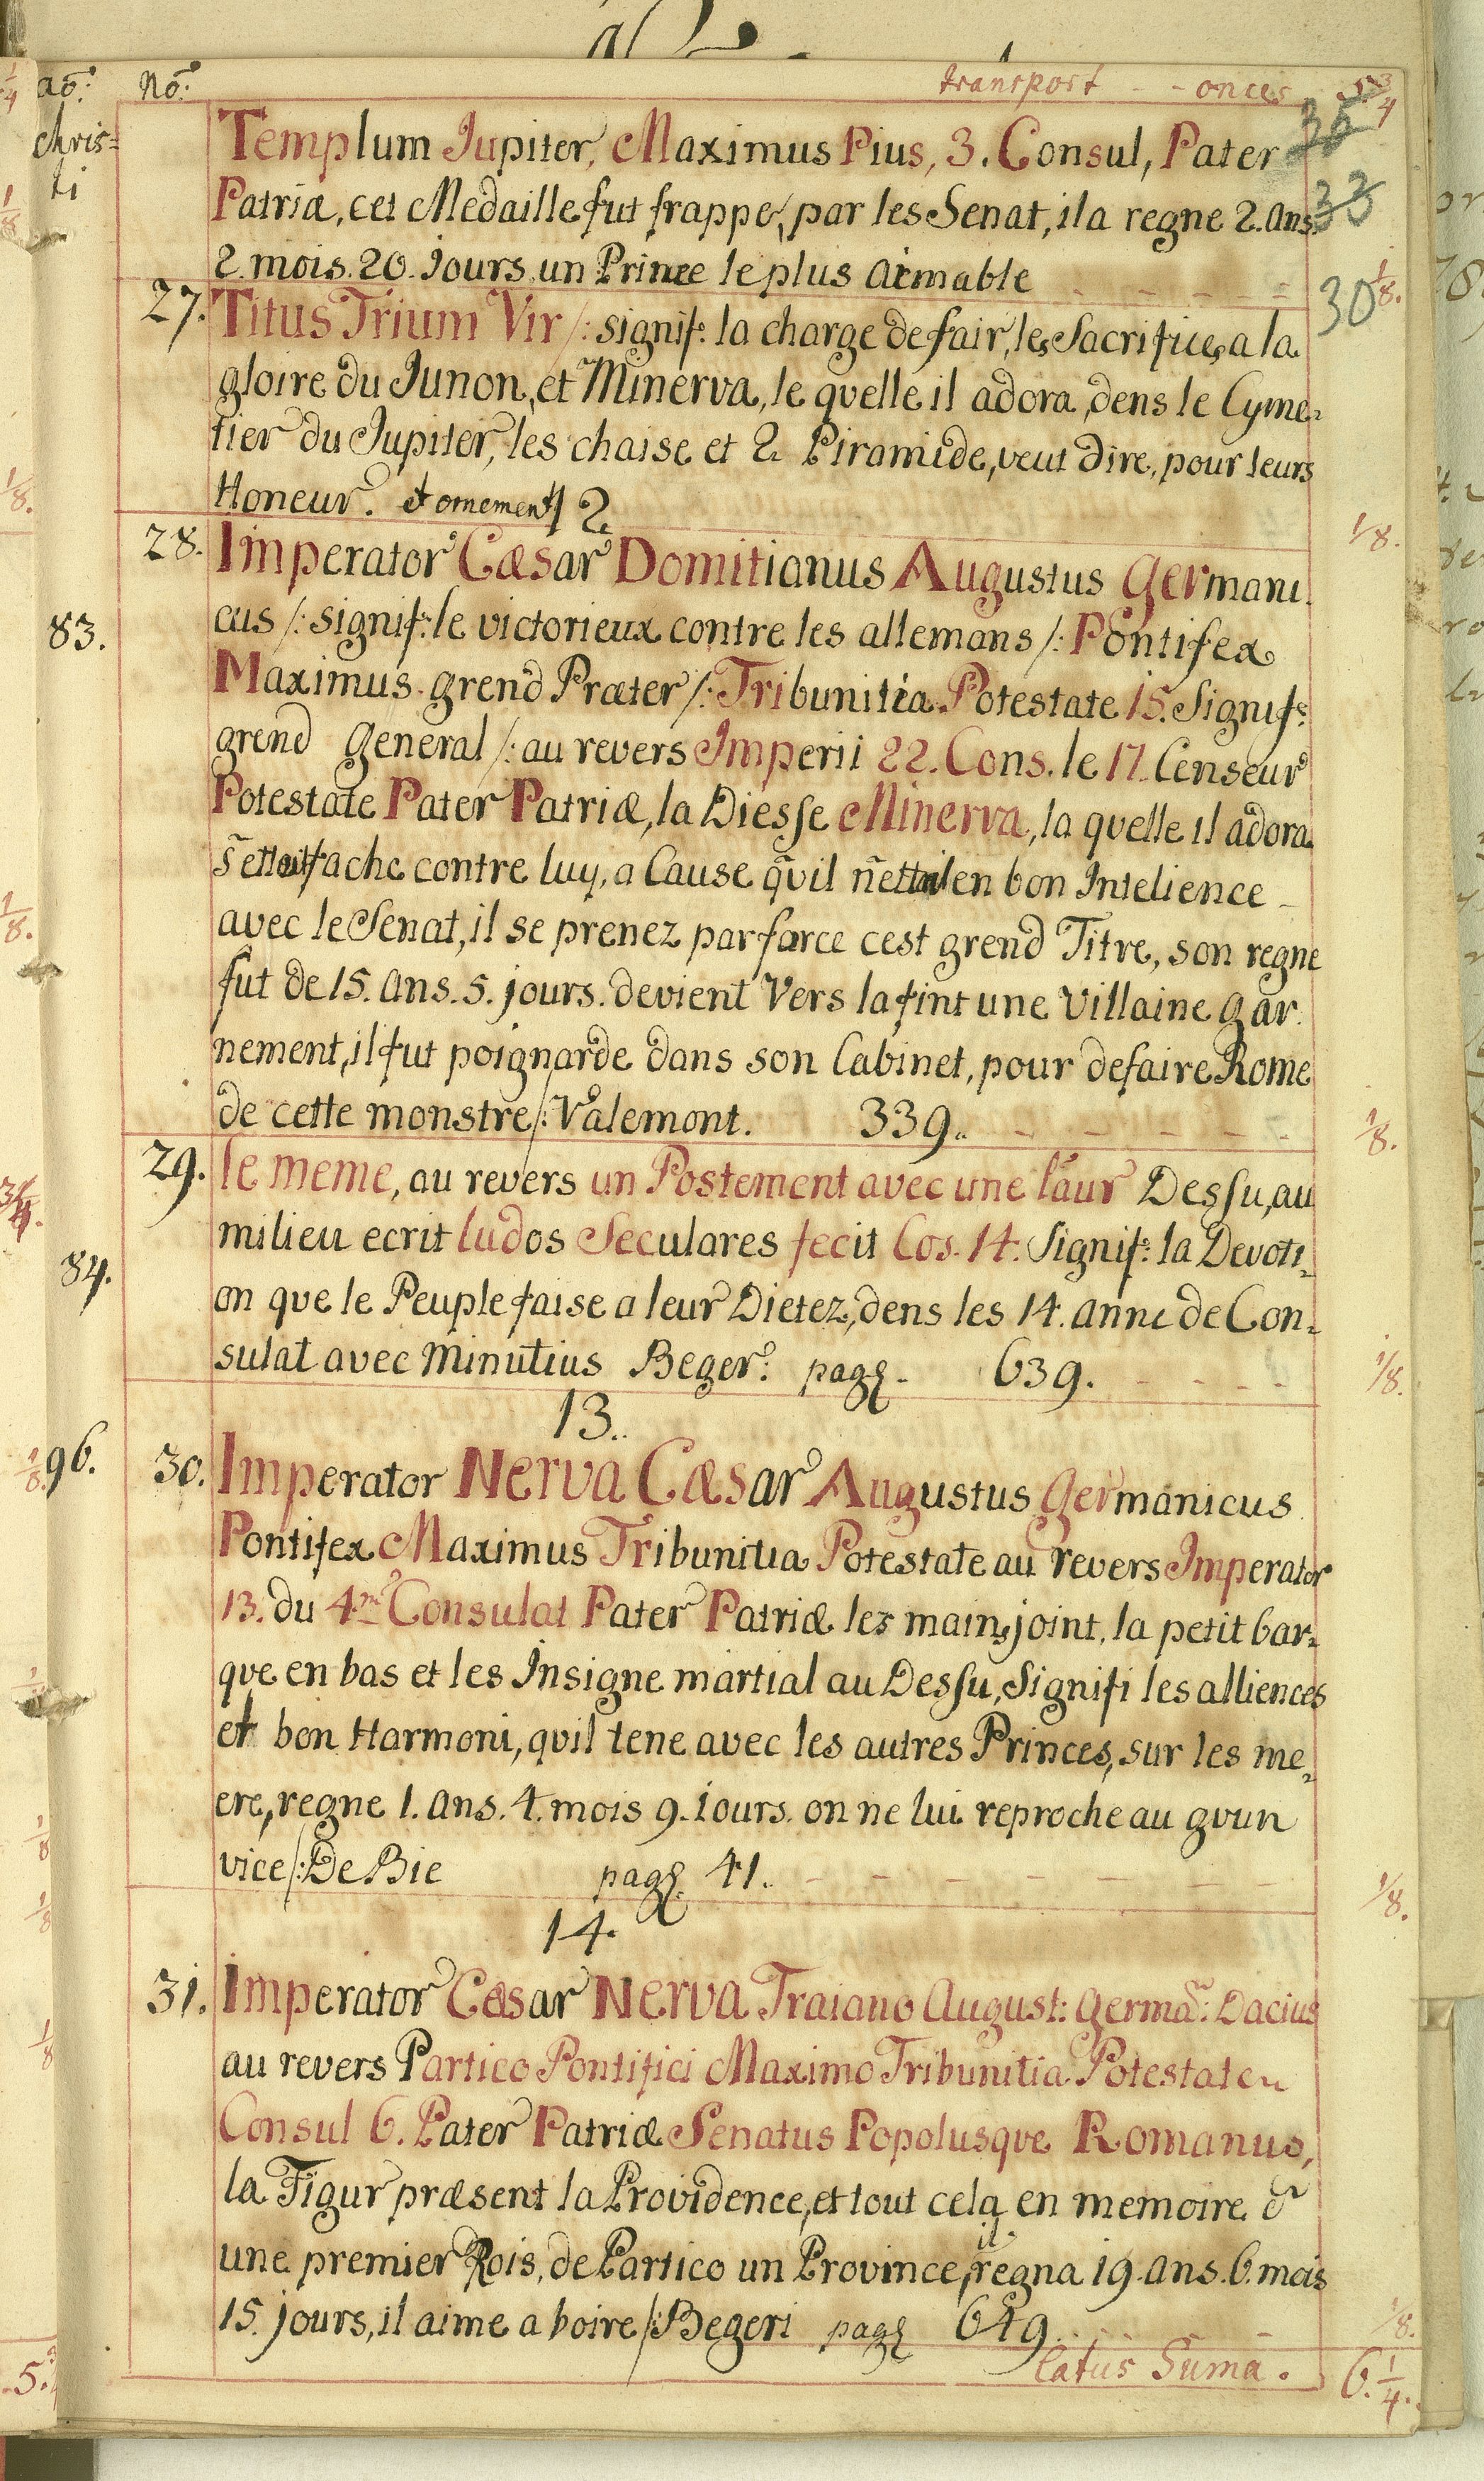 aõ:
chris=
ti
No:
transport - - onces 5 3/4
Templum Jupiter, Maximus Pius, 3. Consul, Pater
Patria, cet Medaille fut frappe, par les Senat, il a regne 2. ans. 33
2. mois. 20. jours. un Prince le plus aimable - - - - - 30 1/8.
27. Titus Trium Vir /: signif: la charge de fair, les Sacrifices a la
gloire du Junon, et Minerva, le quelle il adora, dens le Cyme=
tier du Jupiter, les chaise et 2. Piramide, veut dire, pour leurs
Honeur. et ornement / 2. 1/8.
28. Imperator Cæsar Domitianus Augustus Germani.
83. cus /: signif: le victorieux contre les allemans /: Pontifex
Maximus. grend Præter /: Tribunitia Potestate 15. Signif:
grend general /: au revers Imperii 22. Cons. le 17. Censeur
Potestate Pater Patriæ, la Diesse Minerva, la quelle il adora
s'ettoit fache contre luy, a Cause qvil n'ettoit en bon Intelience
avec le Senat, il se prenez par force cest grend Titre, son regne
fut de 15. ans. 5. jours. devient vers la fint une villaine gar.
nement, il fut poignarde dans son Cabinet, pour defaire Rome
de cette monstre /: Valemont. 339. - - - - - 1/8.
29. le meme, au revers un Postement avec une l'aur Dessu, au
milieu ecrit ludos Seculares fecit Cos. 14. Signif: la Devoti=
84. on que le Peuple faise a leur Dietez, dens les 14. anne de Con=
sulat avec Minutius Beger: pag. 639. - - - - 1/8.
13.
96. 30. Imperator Nerva Cæsar Augustus Germanicus
Pontifex Maximus Tribunitia Potestate au revers Imperator
13. du 4me Consulat Pater Patriæ les mains joint, la petit bar=
que en bas et les Insigne martial au Dessu, Signifi les alliences
et bon Harmoni, qvil tene avec les autres Princes, sur les me=
ere, regne 1. ans. 4. mois 9. jours. on ne lui reproche au qvun
vice /: De Bie pag. 41. - - - - - - 1/8.
14.
31. Imperator Cæsar Nerva Traiano August: Germa: Dacius
au revers Partico Pontifici Maximo Tribunitia Potestate
Consul 6. Pater Patriæ Senatus Popolusqve Romanus,
la Figur præsent la Providence, et tout cela en memoire d
une premier Rois, de Partico un Province, il regna 19. ans. 6. mois
15. jours, il aime a boire /: Begeri pag 649. - - - 1/8.
latus Suma. 6. 1/4.